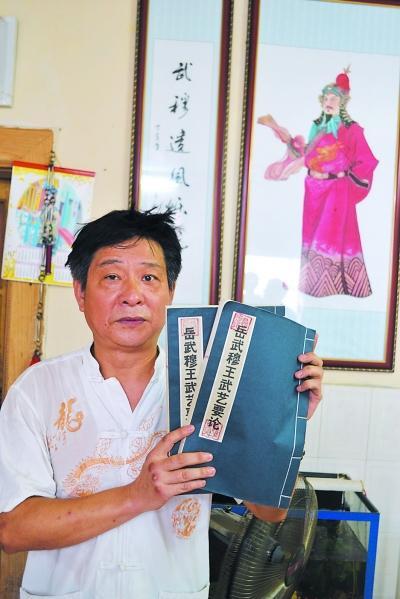 武穆遺風
岳武穆王武艺
岳武穆王武艺要论